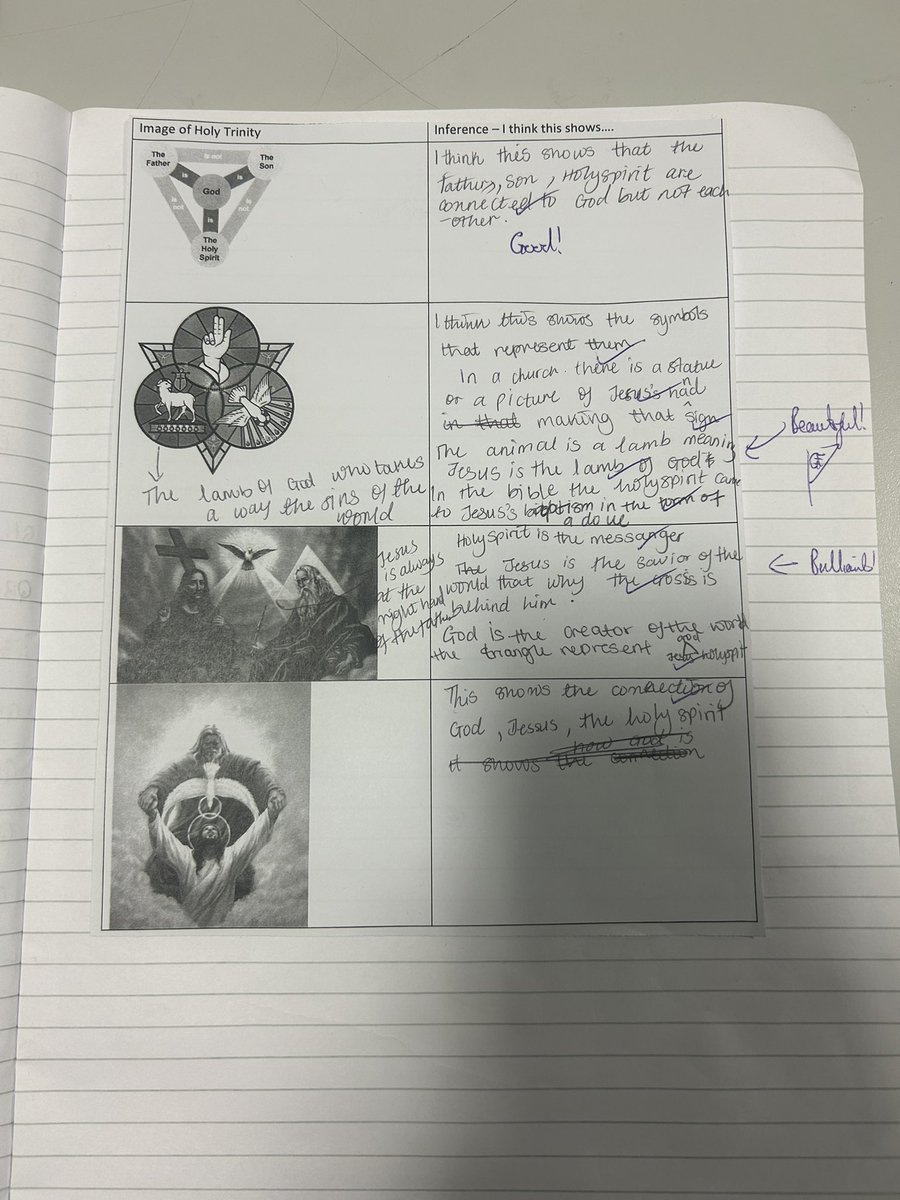 Image of Holy Trinity
Inference – I think this shows....
The Father
is not
The Son
is
God
is
is not
is not
is
The Holy Spirit
I think this shows that the
father, son, Holyspirit are
connected to God but not each
-other.
Good!
I think this shows the symbols
that represent them
In a church there is a statue
or a picture of Jesus's hand
in that making that sign
The animal is a lamb meaning
Jesus is the lamb of God's
In the bible the holyspirit came
to Jesus's baptism in the form of
a dove
Beautiful!
The lamb of God who takes
a way the sins of the
world
Jesus
is always
at the
right hand
of the father
Holy spirit is the messanger
The Jesus is the savior of the
world that why the cross is
behind him.
God is the creator of the world
the triangle represent god
Jesus holyspit
Brilliant!
This shows the connection of
God, Jessus, the holy spirit
how God is
it shows the connection